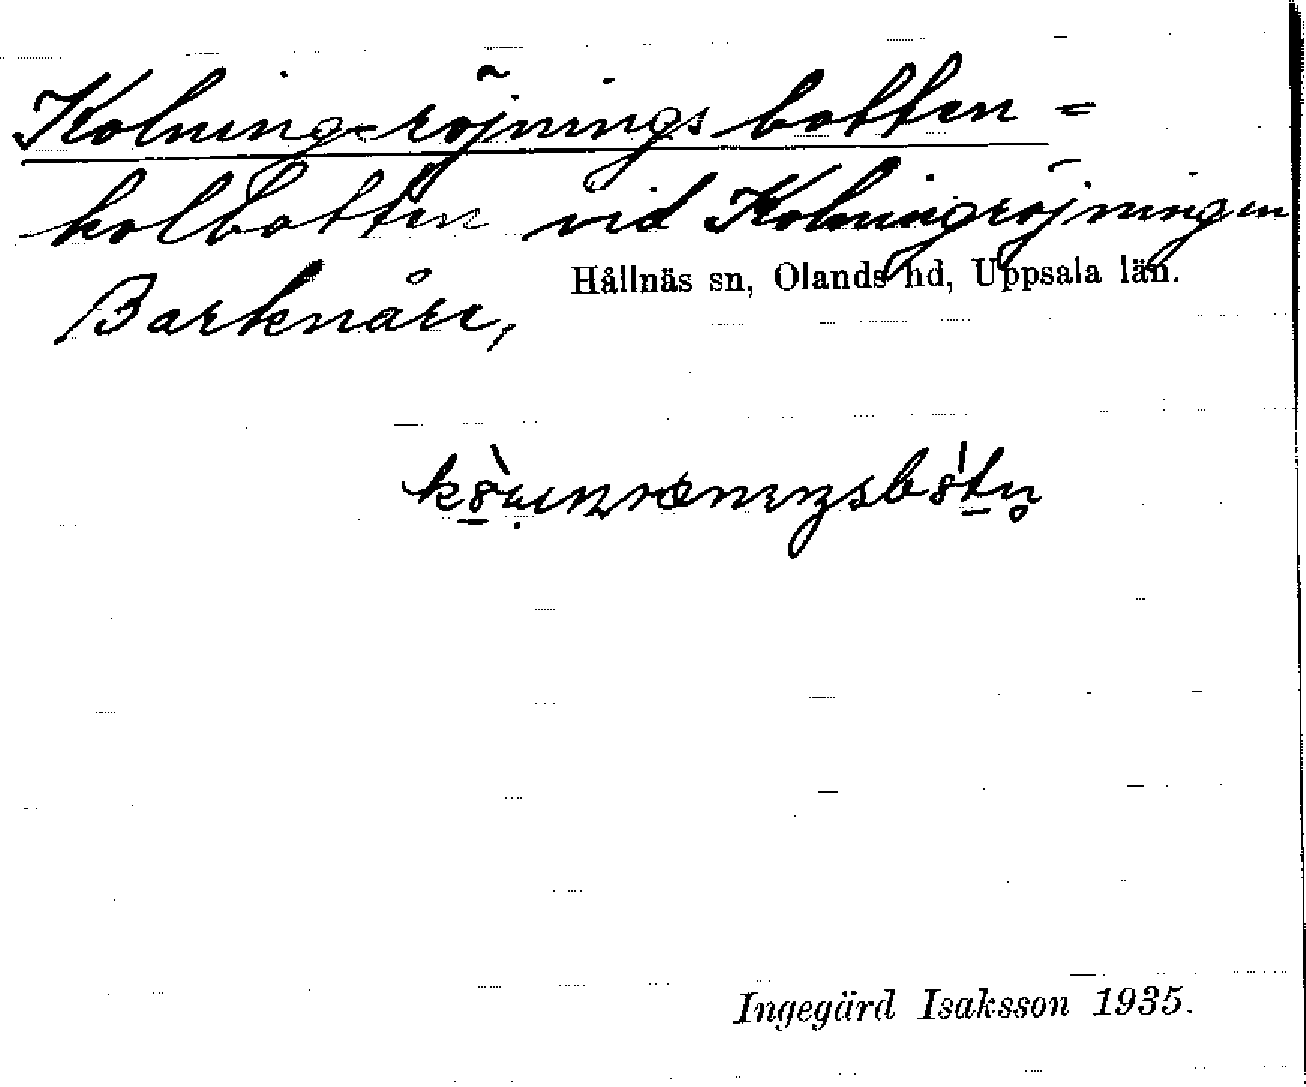 Kolningsröjningsbotten =
kolbotten vid Kolningröjningen
Hållnäs sn, Olands hd, Uppsala län.
Barknåre,
Ingegärd Isaksson 1935.